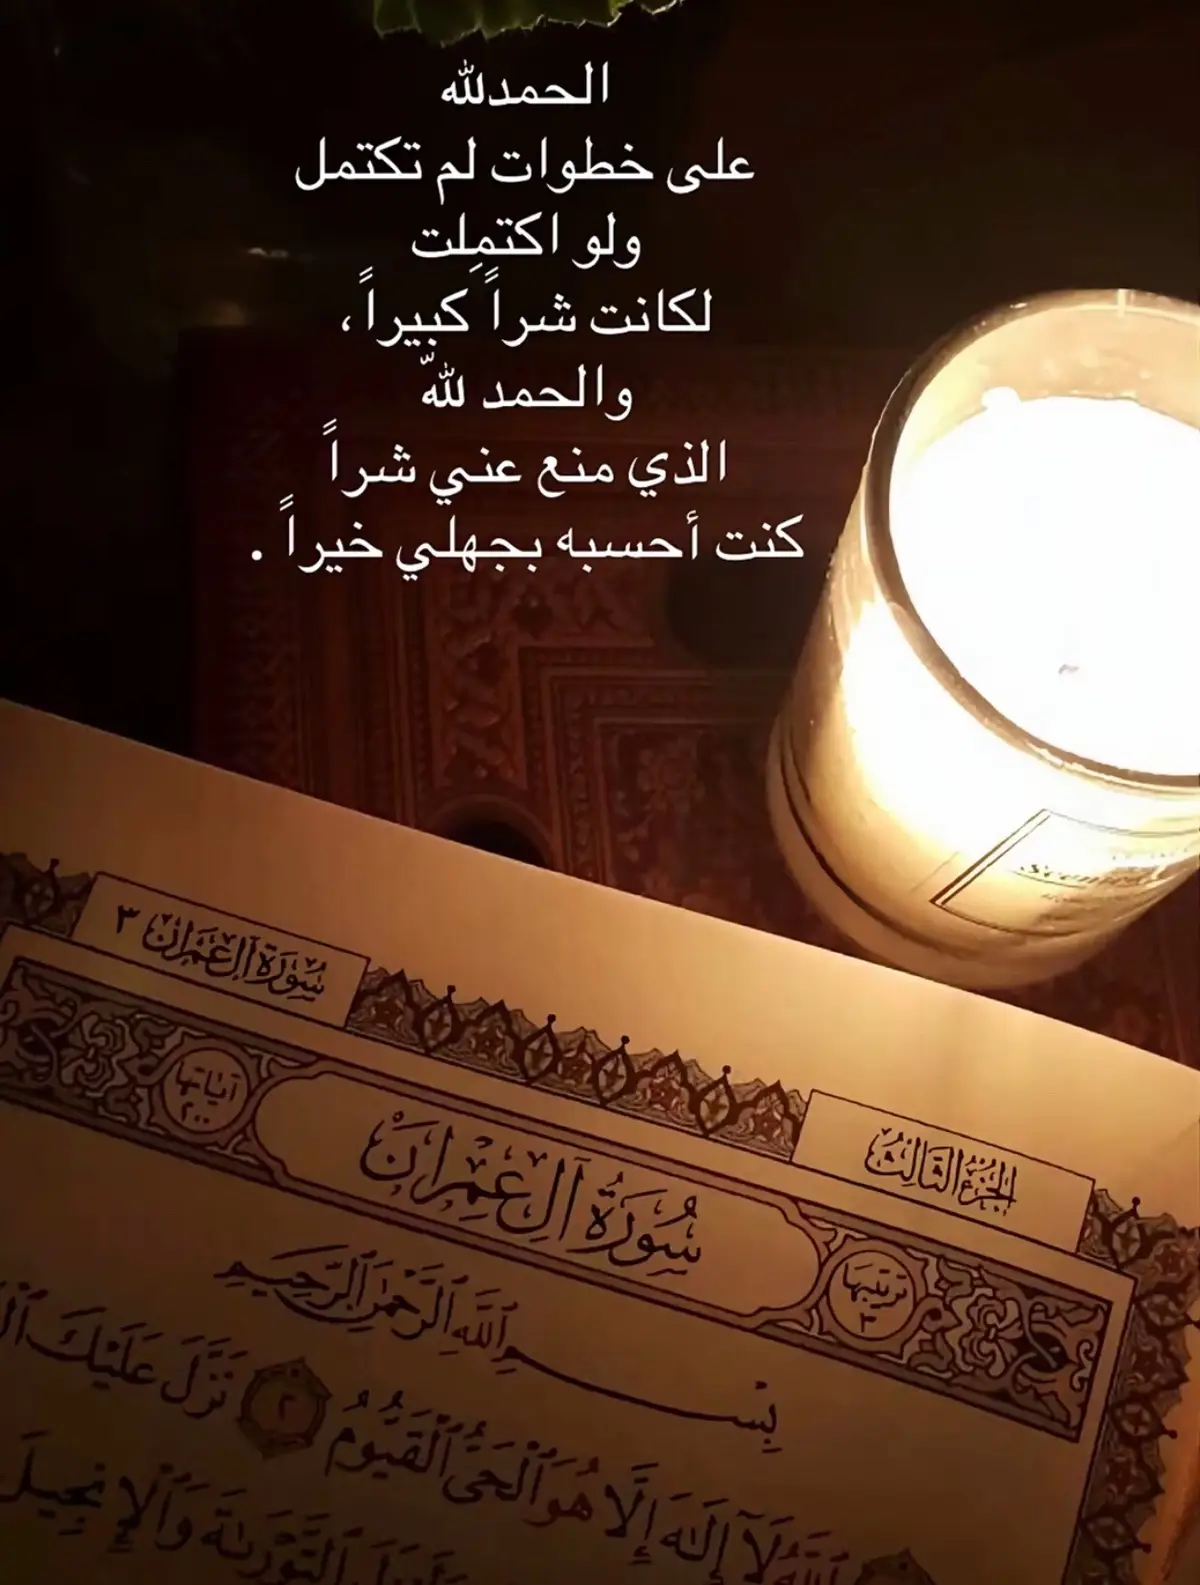 الحمدلله
على خطوات لم تكتمل
ولو اكتملِت
لكانت شراً كبيراً،
والحمد للهّ
الذي منع عني شراً
كنت أحسبه بجهلي خيراً .
سُورَة آل عِمْرَان ٣
الجُزْءُ الثَّالِثُ
آياتها
٢٠٠
سُورَةُ آلِ عِمْرَانَ
ترتيبها
٣
بِسْمِ ٱللَّهِ ٱلرَّحْمَٰنِ ٱلرَّحِيمِ
ٱللَّهُ لَآ إِلَٰهَ إِلَّا هُوَ ٱلْحَىُّ ٱلْقَيُّومُ ٢ نَزَّلَ عَلَيْكَ
ٱلتَّوْرَىٰةَ وَٱلْإِنجِيلَ